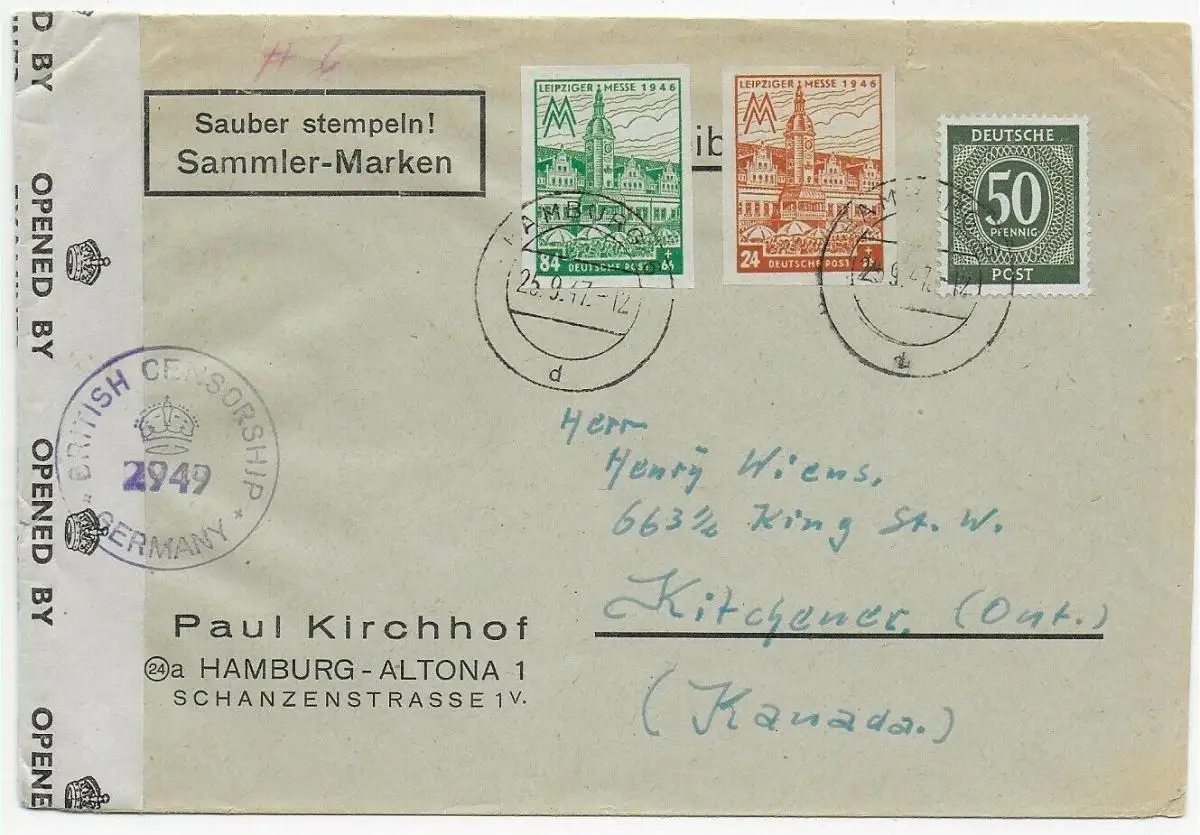 OPENED BY
OPENED BY
OPENED BY
OPENE
Sauber stempeln!
Sammler-Marken
LEIPZIGER MESSE 1946
84 DEUTSCHE POST
LEIPZIGER MESSE 1946
24 DEUTSCHE POST
DEUTSCHE
50
PFENNIG
POST
HAMBURG
25.9.47.-12
d
BRITISH CENSORSHIP
2949
GERMANY
Herrn
Henry Wiens,
663½ King St. W.
Kitchener, (Ont.)
(Kanada.)
Paul Kirchhof
24a HAMBURG-ALTONA 1
SCHANZENSTRASSE 1 V.